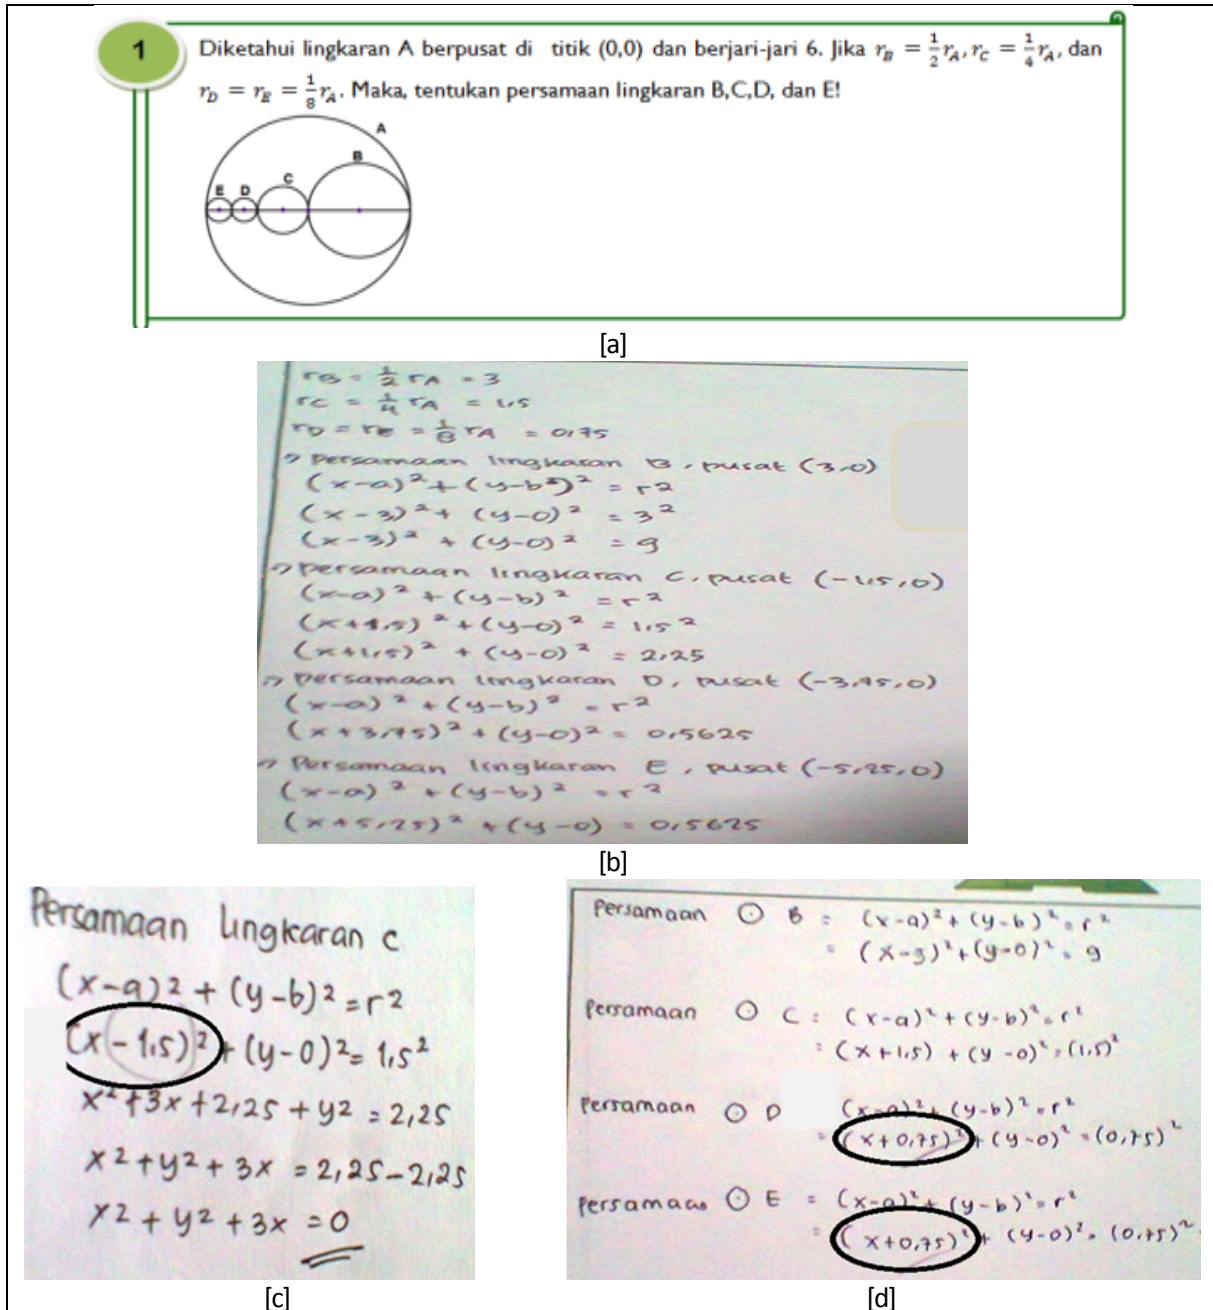 1
Diketahui lingkaran A berpusat di titik (0,0) dan berjari-jari 6. Jika r_B = 1/2 r_A, r_C = 1/4 r_A, dan
r_D = r_E = 1/8 r_A. Maka, tentukan persamaan lingkaran B,C,D, dan E!
A
B
C
E D
[a]
rB = 1/2 rA = 3
rC = 1/4 rA = 1,5
rD = rE = 1/8 rA = 0,75
→ persamaan lingkaran B, pusat (3,0)
(x-a)² + (y-b)² = r²
(x-3)² + (y-0)² = 3²
(x-3)² + (y-0)² = 9
→ persamaan lingkaran C, pusat (-1,5,0)
(x-a)² + (y-b)² = r²
(x+1,5)² + (y-0)² = 1,5²
(x+1,5)² + (y-0)² = 2,25
→ persamaan lingkaran D, pusat (-3,75,0)
(x-a)² + (y-b)² = r²
(x+3,75)² + (y-0)² = 0,5625
→ Persamaan lingkaran E, pusat (-5,25,0)
(x-a)² + (y-b)² = r²
(x+5,25)² + (y-0) = 0,5625
[b]
Persamaan lingkaran c
(x-a)² + (y-b)² = r²
(x-1,5)² + (y-0)² = 1,5²
x² + 3x + 2,25 + y² = 2,25
x² + y² + 3x = 2,25 - 2,25
x² + y² + 3x = 0
[c]
Persamaan ⊙ B = (x-a)² + (y-b)² = r²
= (x-3)² + (y-0)² = 9
Persamaan ⊙ C = (x-a)² + (y-b)² = r²
= (x+1,5) + (y-0)² = (1,5)²
Persamaan ⊙ D (x-a)² + (y-b)² = r²
= (x+0,75)² + (y-0)² = (0,75)²
Persamaan ⊙ E = (x-a)² + (y-b)² = r²
= (x+0,75)² + (y-0)² = (0,75)²
[d]